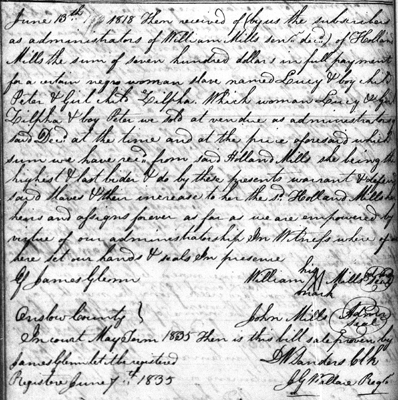 June 13th 1818 Then received of (by us the subscribers
as administrators of William Mills senr. decd.) of Holland
Mills the sum of seven hundred dollars in full payment
for a certain negro woman slave named Lucy & boy child
Peter & Girl child Zilpha. Which woman Lucy & Girl
Zilpha & boy Peter we sold at vendue as administrators
said Decd. at the time and at the price aforesaid which
sum we have recd. from said Holland Mills she being the
highest & last bider & do by these presents warrant & defend
said slaves & their increase to her the sd. Holland Mills her
heirs and assigns forever as far as we are empowered by
virtue of our administratorship In Witness where of we
here set our hands & seals In presence
of James Glenn William his mark Mills
Onslow County } John Mills Admr Seal
In court May Term 1835 Then is this bill sale proven by
James Glenn let be registered D W Sanders Clk
Registered June 7th 1835 J G Wallace Regr